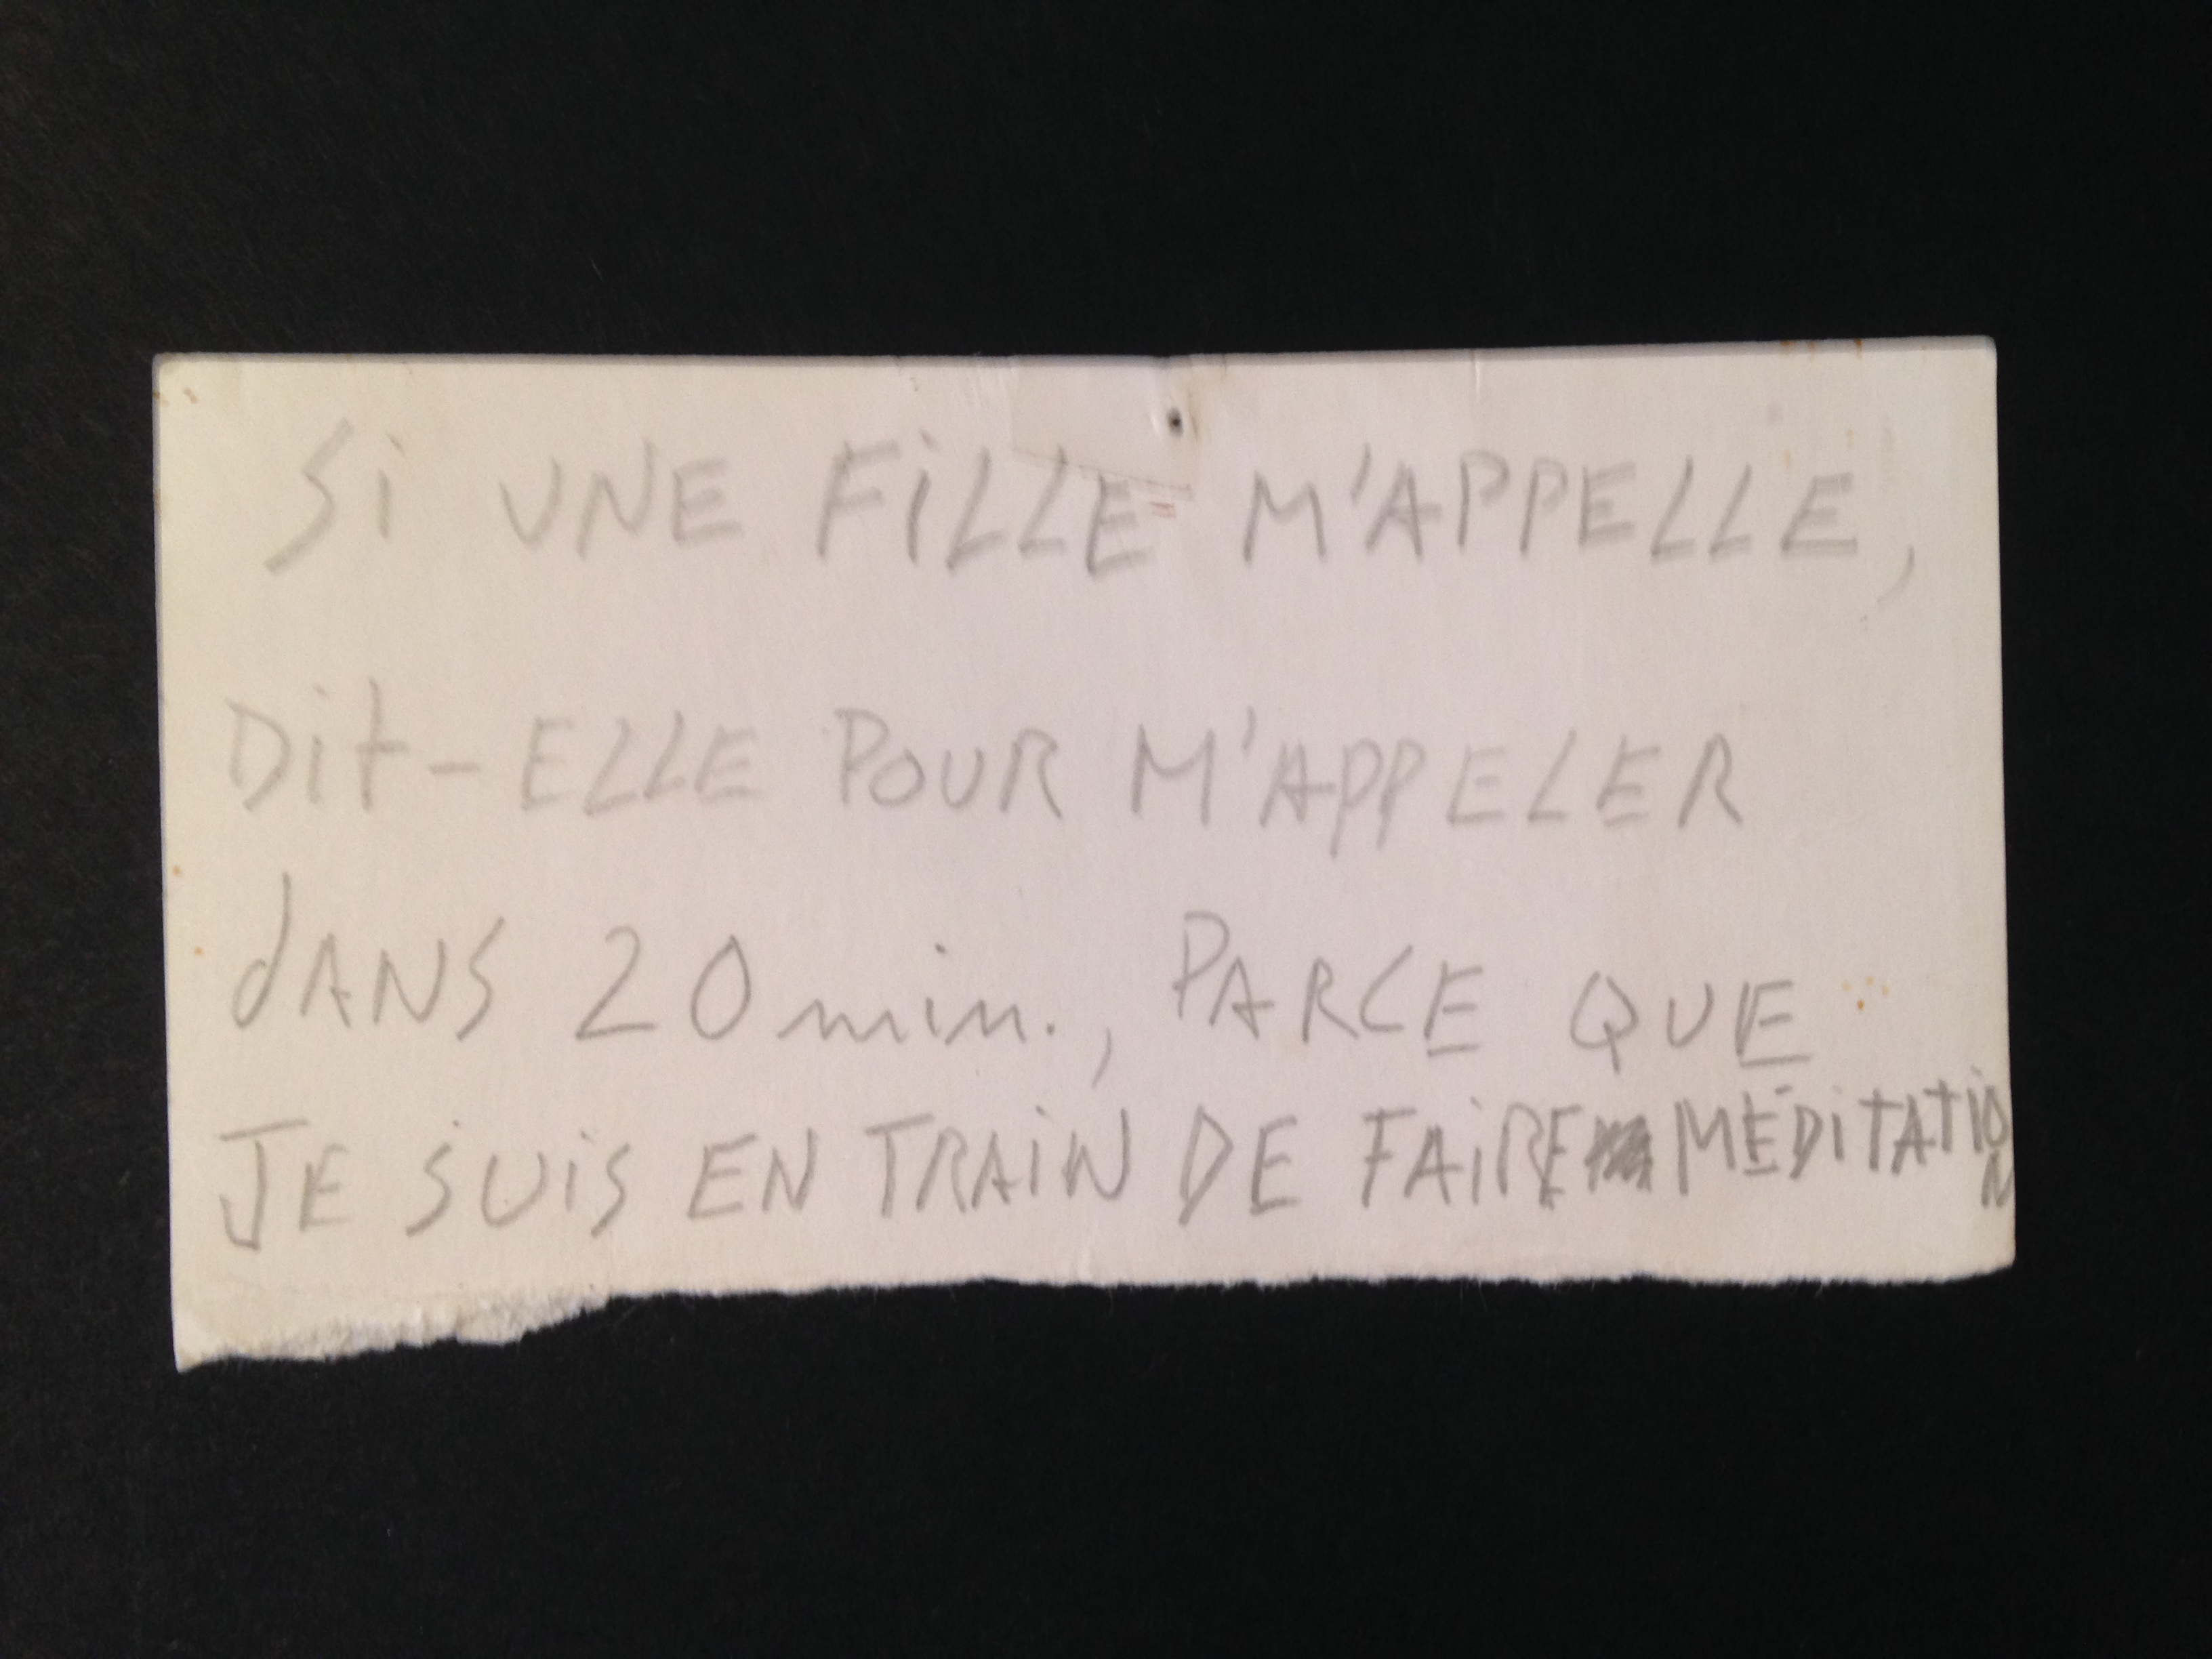 Si UNE FiLLE M'APPELLE,
Dit-ELLE POUR M'APPELER
dANS 20 min., PARCE QUE
JE SUiS EN TRAiN DE FAiRE MÉDiTATiON